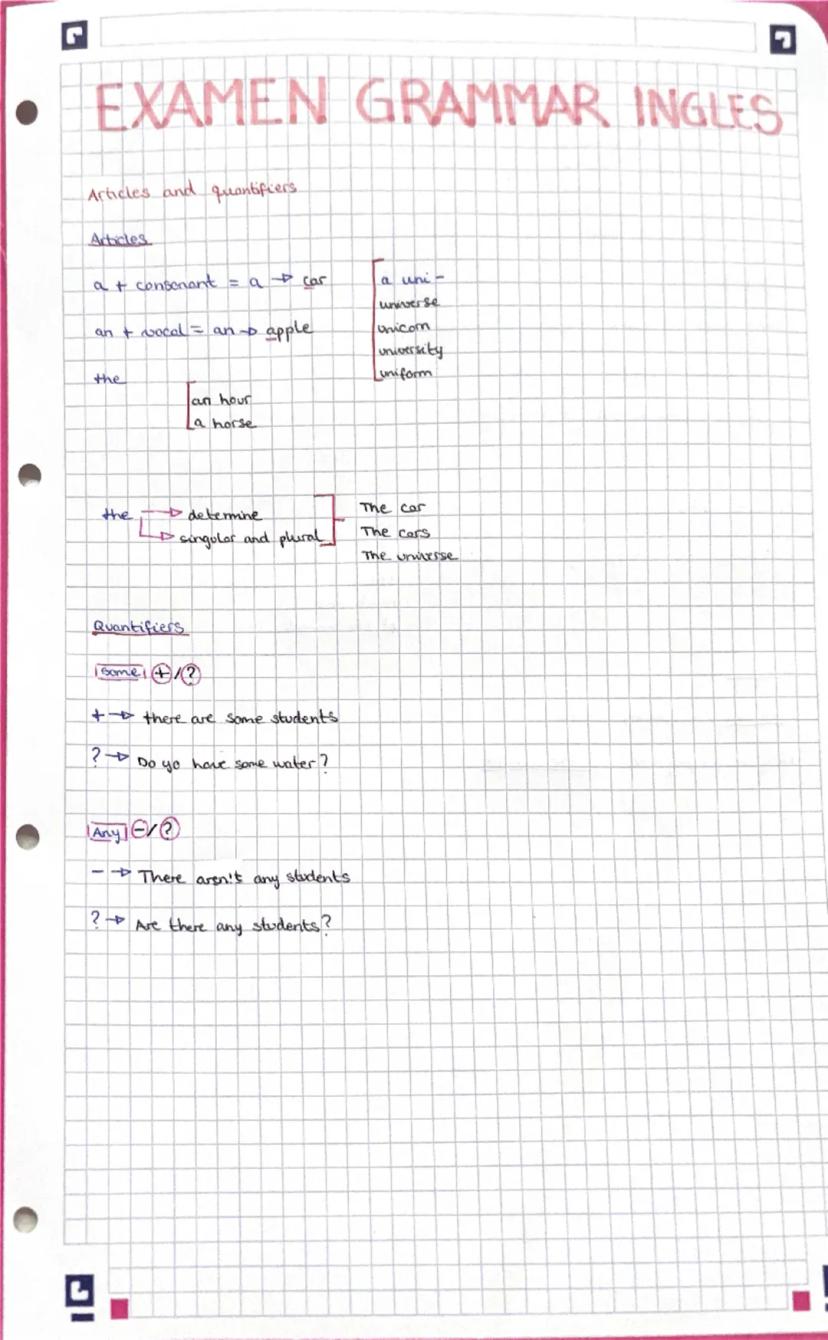 EXAMEN GRAMMAR INGLES
Articles and quantifiers
Articles
a + consonant = a → car
an + vocal = an → apple
the
an hour
a horse
a uni-
universe
unicorn
university
uniform
the → determine
→ singular and plural
The car
The cars
The universe
Quantifiers
some + / ?
+ → there are some students
? → Do yo have some water?
Any - / ?
- → There aren't any students
? → Are there any students?